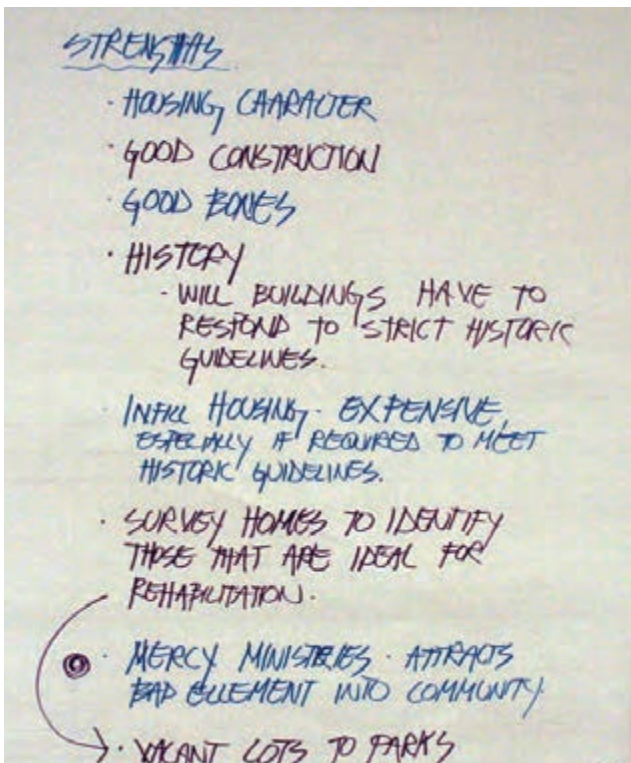 STRENGTHS
· HOUSING CHARACTER
· GOOD CONSTRUCTION
· GOOD BONES
· HISTORY
· WILL BUILDINGS HAVE TO
RESPOND TO STRICT HISTORIC
GUIDELINES.
· INFILL HOUSING · EXPENSIVE,
ESPECIALLY IF REQUIRED TO MEET
HISTORIC GUIDELINES.
· SURVEY HOMES TO IDENTIFY
THOSE THAT ARE IDEAL FOR
REHABILITATION.
· MERCY MINISTRIES · ATTRACTS
BAD ELLEMENT INTO COMMUNITY
· VACANT LOTS TO PARKS